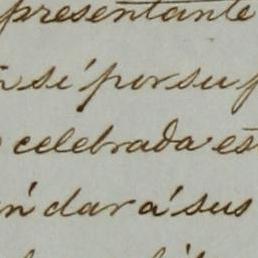 presentante
sé por su
celebrada es
dar a sus